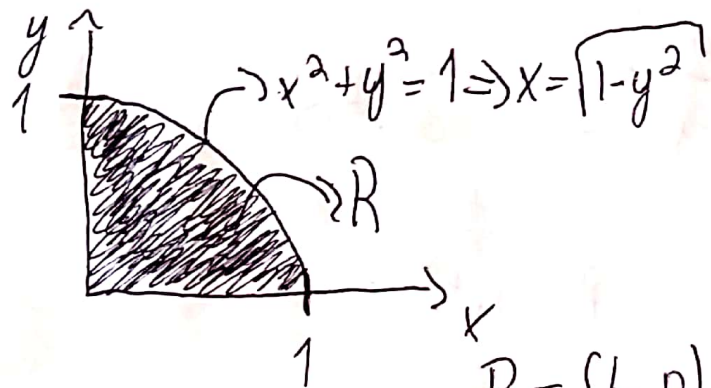 y
1 x²+y²=1⇒x=√1-y²
R
x
1